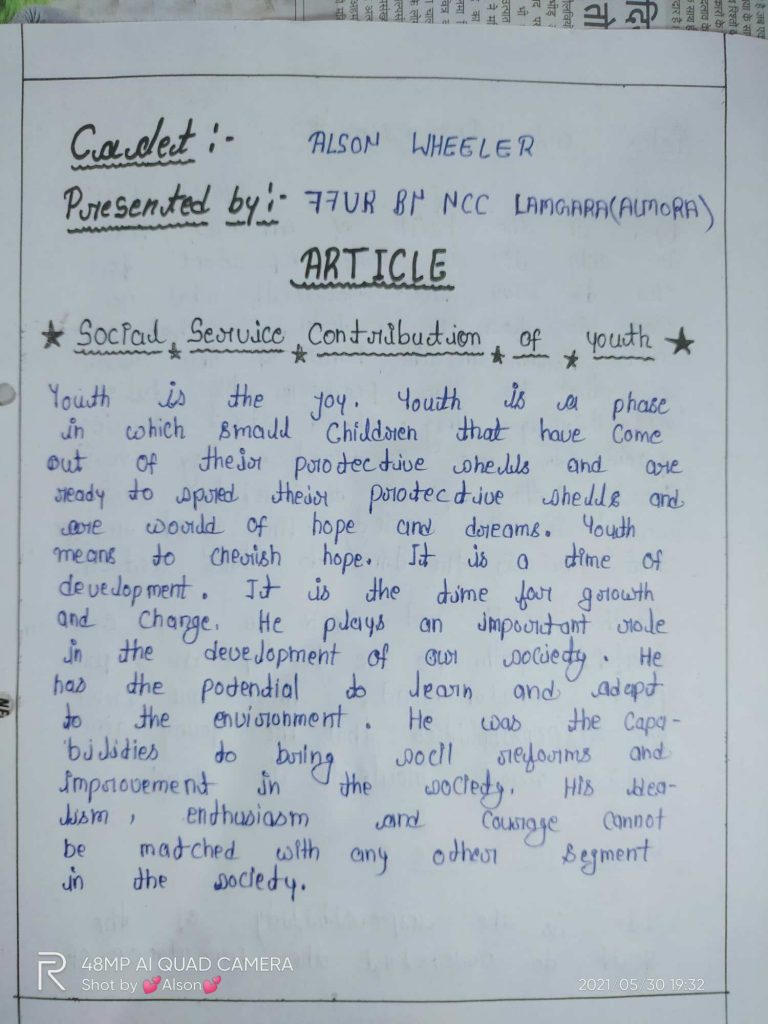 Cadet :- ALSON WHEELER
Presented by :- 77UR BN NCC LAMGARA(ALMORA)
ARTICLE
★ Social ★ Service ★ Contribution ★ of ★ youth ★
Youth is the joy. Youth is a phase
in which small Children that have Come
out of their protective shells and are
ready to spred their protective shells and
are world of hope and dreams. Youth
means to cherish hope. It is a time of
development. It is the time for growth
and Change. He plays an important role
in the development of our society. He
has the potential to learn and adapt
to the environment. He was the Capa-
bilities to bring socil reforms and
improvement in the society. His idea-
lism, enthusiasm and Courage Cannot
be matched with any other segment
in the society.
48MP AI QUAD CAMERA
Shot by 💕Alson💕
2021.05.30 19:32